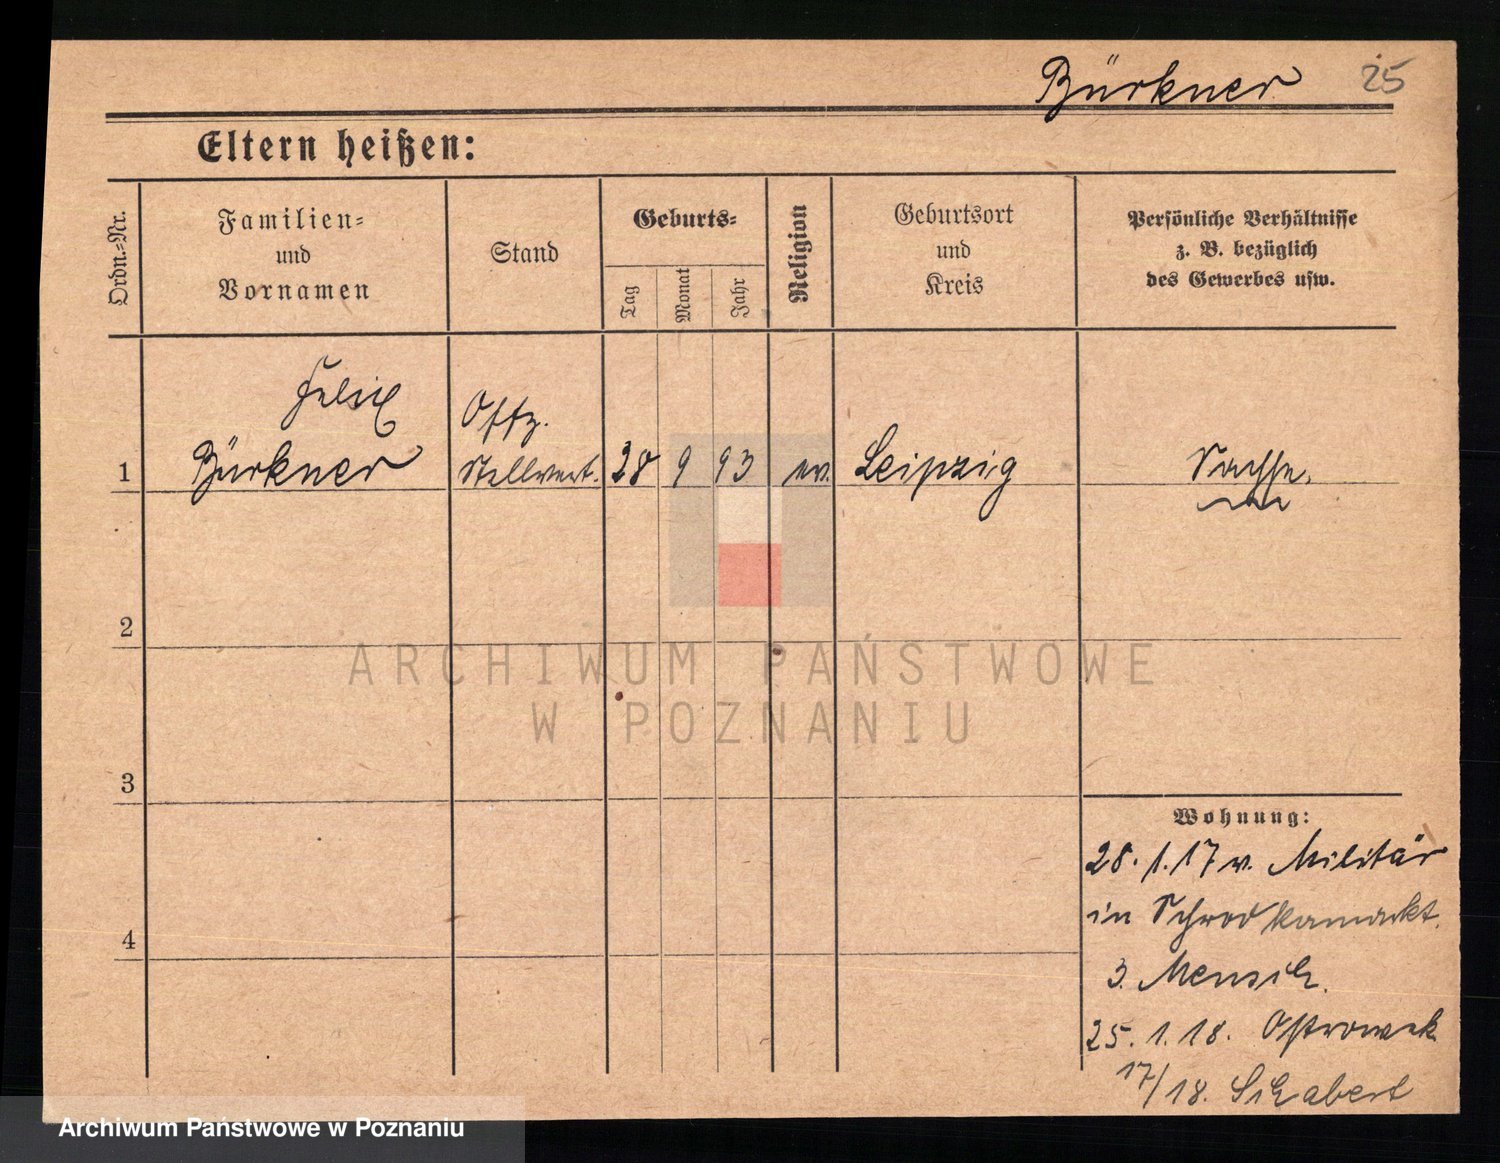 Bürkner 25
Eltern heißen:
Ordn.=Nr.
Familien=
und
Vornamen
Stand
Geburts=
Tag
Monat
Jahr
Religion
Geburtsort
und
Kreis
Persönliche Verhältnisse
z. B. bezüglich
des Gewerbes usw.
Felix
Offz.
1 Bürkner Stellvert. 28 9 93 ev. Leipzig Sachse.
2
ARCHIWUM PAŃSTWOWE
W POZNANIU
3
Wohnung:
28. 1. 17 v. Militär
in Schrod
4
3.
25. 1. 18. Ostrowek
17/18.
Archiwum Państwowe w Poznaniu